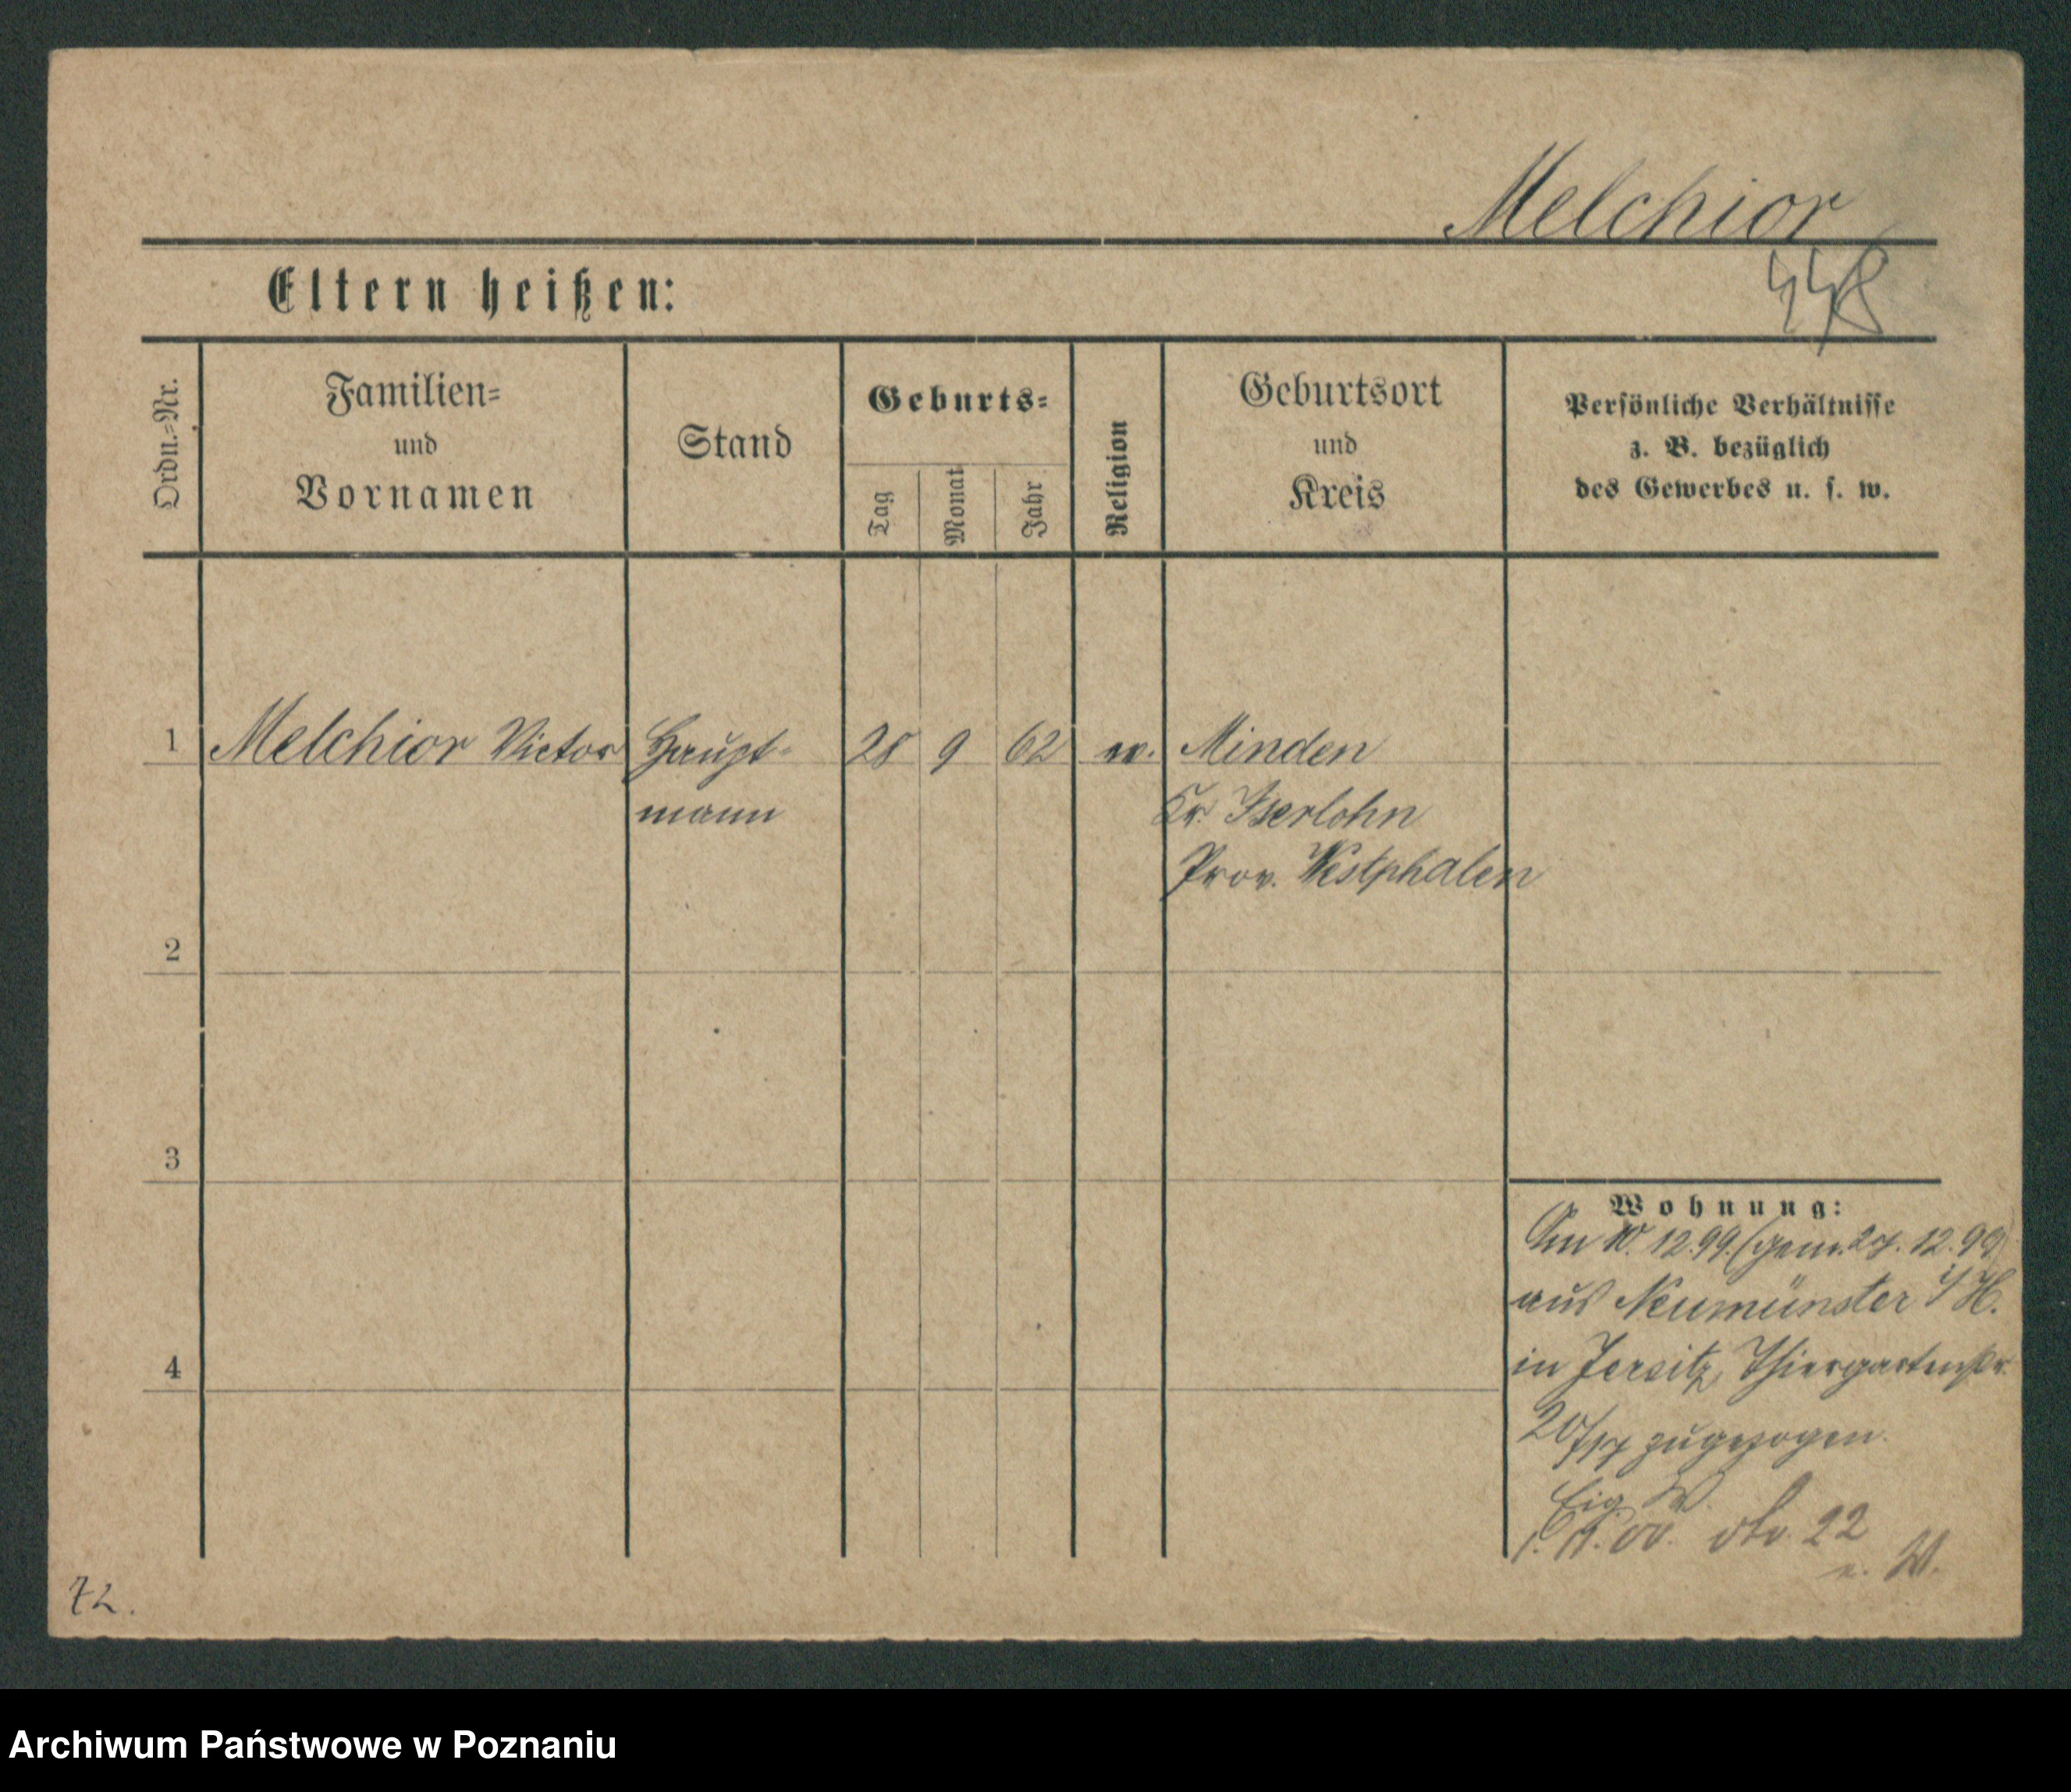 Melchior
Eltern heißen:
448
Ordn.=Nr.
Familien=
und
Vornamen
Stand
Geburts=
Tag
Monat
Jahr
Religion
Geburtsort
und
Kreis
Persönliche Verhältnisse
z. B. bezüglich
des Gewerbes u. s. w.
1 Melchior Victor Haupt- 28 9 62 ev. Minden
mann Kr. Iserlohn
Prov. Westphalen
2
3
Wohnung:
Am 10. 12. 99. (gem. 27. 12. 99)
aus Neumünster i/H.
4 in Jersitz, Thiergartenstr.
20/ zugezogen.
Eig. W.
1. 00. 22
W.
72.
Archiwum Państwowe w Poznaniu